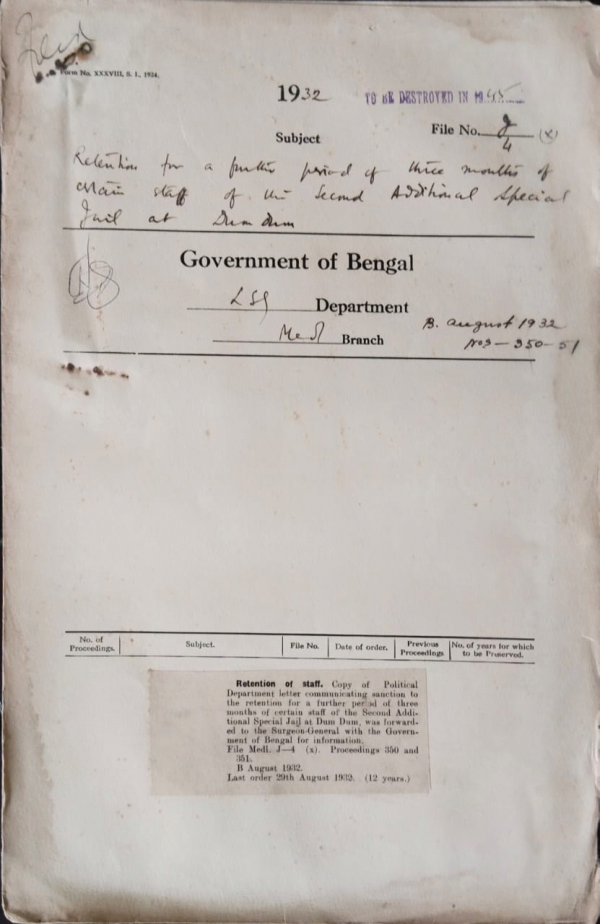 Form No. XXXVIII, S. I., 1924.
1932 TO BE DESTROYED IN 1945
File No. J/4 (x)
Subject
Retention for a further period of three months of
certain staff of the Second Additional Special
Jail at Dum Dum
Government of Bengal
LSG Department
Medl Branch
B. August 1932
Nos - 350 - 51
No. of Proceedings. Subject. File No. Date of order. Previous Proceedings No. of years for which to be Preserved.
Retention of staff. Copy of Political
Department letter communicating sanction to
the retention for a further period of three
months of certain staff of the Second Addi-
tional Special Jail at Dum Dum, was forward-
ed to the Surgeon-General with the Govern-
ment of Bengal for information.
File Medl. J—4 (x). Proceedings 350 and
351.
B August 1932.
Last order 29th August 1932. (12 years.)